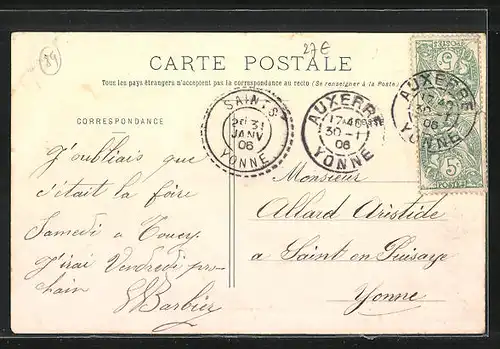 84
27€
CARTE POSTALE
Tous les pays étrangers n'acceptent pas la correspondance au recto (Se renseigner à la Poste)
CORRESPONDANCE
SAINTS
31
JANV
06
YONNE
AUXERRE
17 40
30-11
06
YONNE
AUXERRE
06
YONNE
5
POSTES
J'oubliais que
c'était la foire
Samedi a Toucy.
J'irai Vendredi pro-
chain
Barbier
Monsieur
Allard Aristide
a Saint en Puisaye
Yonne